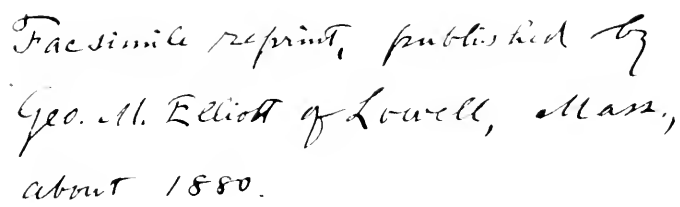 Facsimile reprint, published by
Geo. M. Elliott of Lowell, Mass.,
about 1880.